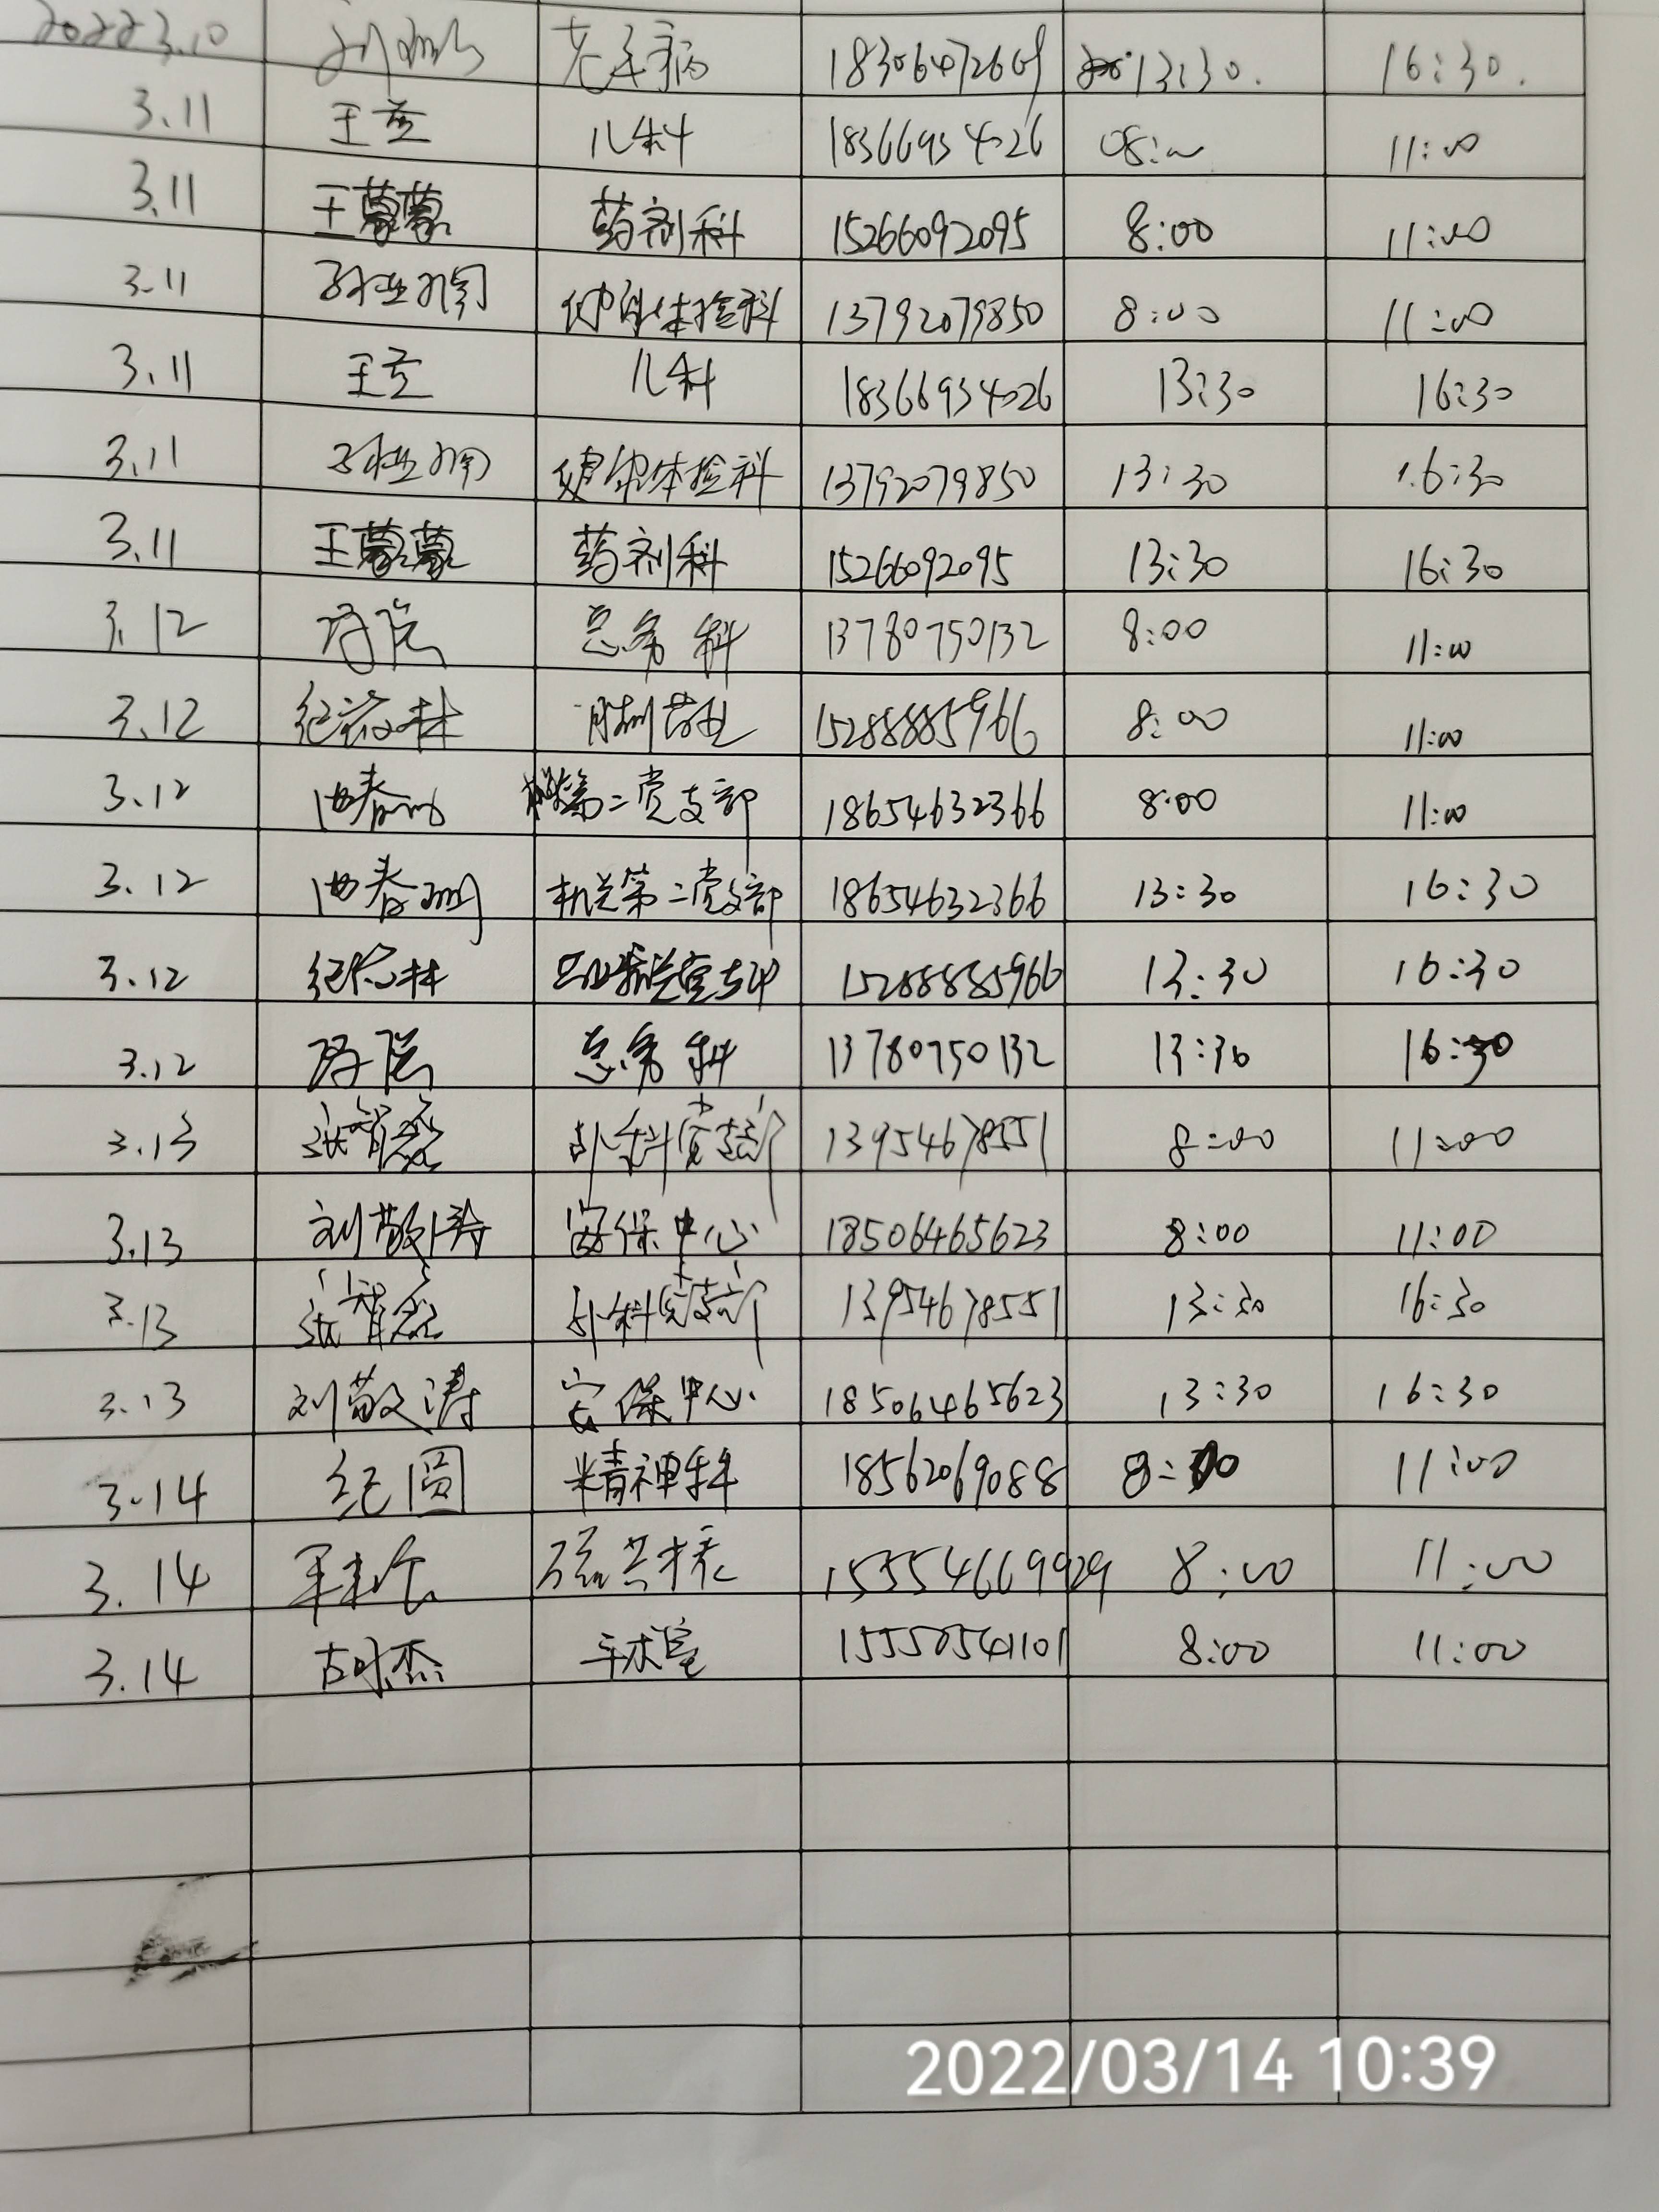 2022 3.10 老年病 13:30. 16:30.
3.11 王芸 儿科 18366934026 08:00 11:00
3.11 王蒙蒙 药剂科 15266092095 8:00 11:00
3.11 体检科 13792079850 8:00 11:00
3.11 王芸 儿科 18366934026 13:30 16:30
3.11 健康体检科 13792079850 13:30 16:30
3.11 王蒙蒙 药剂科 15266092095 13:30 16:30
3.12 总务科 13780750132 8:00 11:00
3.12 纪 林 15288885966 8:00 11:00
3.12 池春 第二党支部 18654632366 8:00 11:00
3.12 池春 机关第二党支部 18654632366 13:30 16:30
3.12 纪 林 15288885966 13:30 16:30
3.12 总务科 13780750132 13:30 16:30
3.13 张智 外科党支部 13954678551 8:00 11:00
3.13 刘敬涛 安保中心 18506465623 8:00 11:00
3.13 张智 外科党支部 13954678551 13:30 16:30
3.13 刘敬涛 安保中心 18506465623 13:30 16:30
3.14 纪圆 精神科 18562069088 8:00 11:00
3.14 磁共振 15554669929 8:00 11:00
3.14 手术室 15550541101 8:00 11:00
2022/03/14 10:39